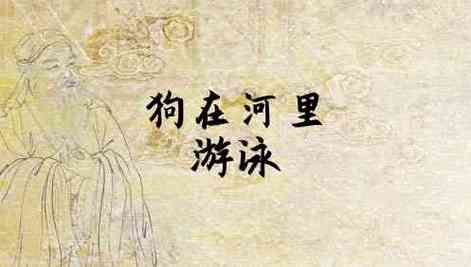 狗在河里
游泳